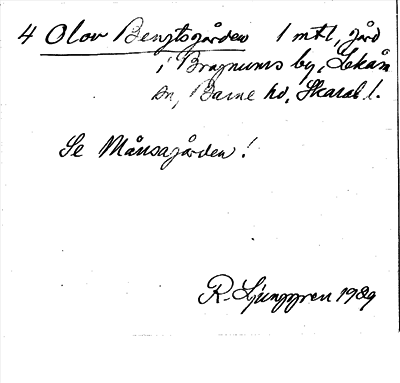 4 Olov Bengtsgården 1 mtl, gård
i Bragnums by, Lekås
sn, Barne hd, Skarab l.
Se Månsagården!
R. Ljunggren 1989